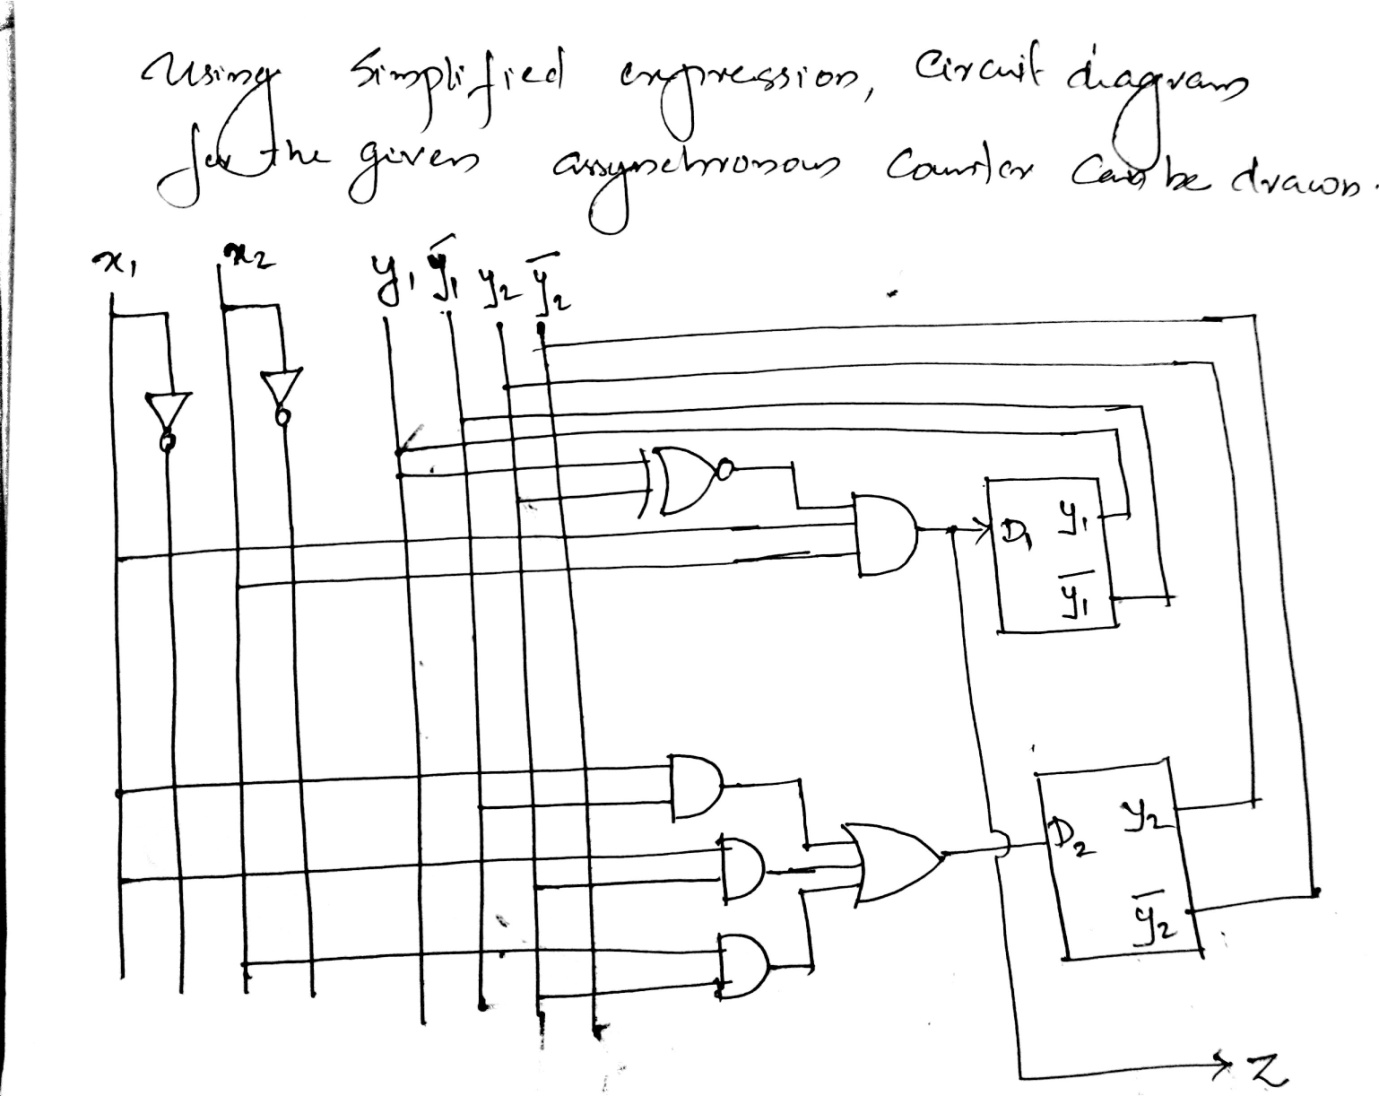 Using Simplified expression, Circuit diagram
for the given assynchronous Counter Can be drawn.
x₁ x₂ y₁ y̅₁ y₂ y̅₂
D₁ y₁
y̅₁
D₂ y₂
y̅₂
Z